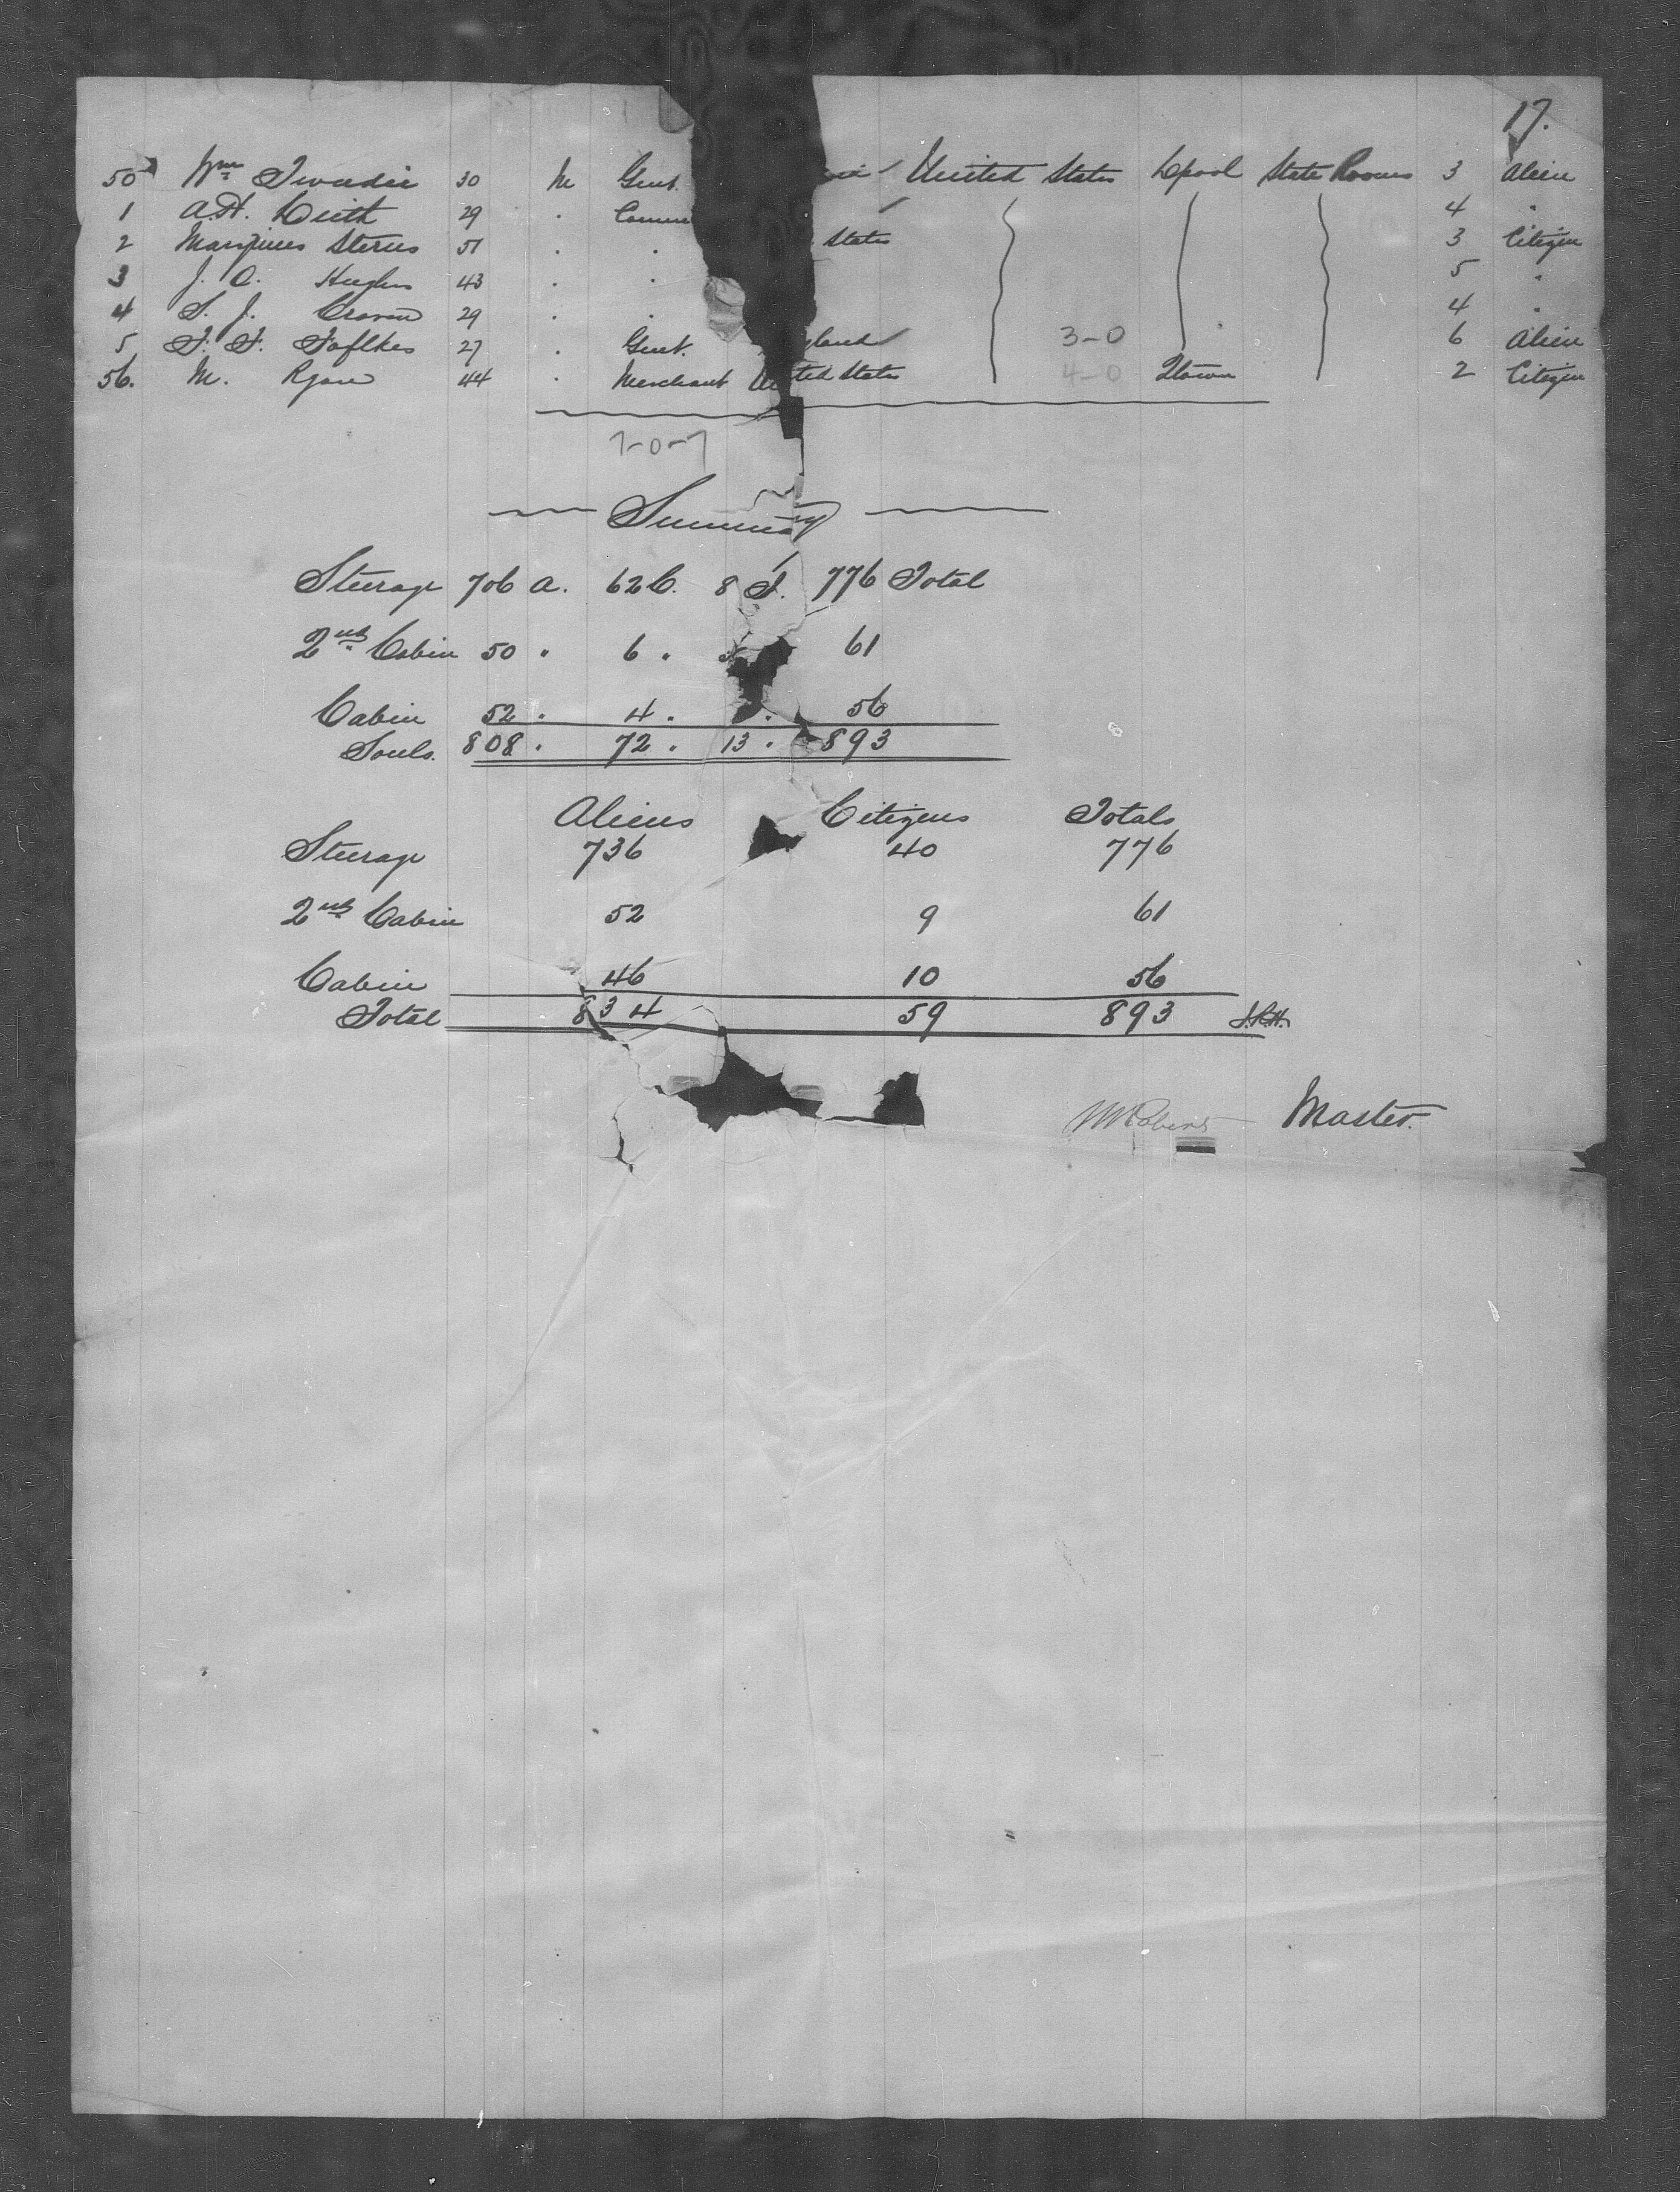 17.
50 Wm Tweedie 30 M Gent. United States Lpool State Rooms 3 Alien
1 A.H. Leith 29 . 4 "
2 Sterns 51 . . States 3 Citizen
3 J. C. Hughes 43 . . 5 "
4 S. J. Craven 29 . . 4 "
5 27 . Gent. gland 3-0 6 Alien
56. M. Ryan 44 . Merchant United States 4-0 Qtown 2 Citizen
7-0-7
Summary
Steerage 706 A. 62 C. 8 I. 776 Total
2nd Cabin 50 " 6 " 61
Cabin 52 " 4 " " 56
Souls. 808 " 72 " 13 " 893
Aliens Citizens Totals
Steerage 736 40 776
2nd Cabin 52 9 61
Cabin 46 10 56
Total 834 59 893
Master.